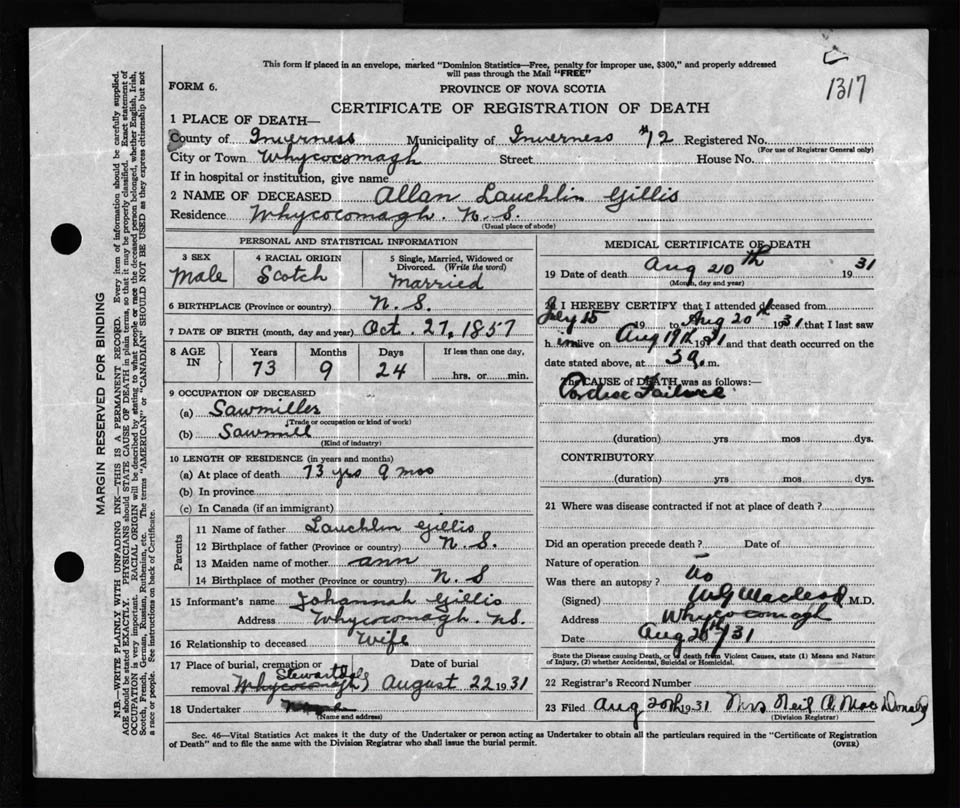 1317
This form if placed in an envelope, marked "Dominion Statistics—Free, penalty for improper use, $300," and properly addressed
will pass through the Mail "FREE"
FORM 6.
PROVINCE OF NOVA SCOTIA
CERTIFICATE OF REGISTRATION OF DEATH
1 PLACE OF DEATH—
County of Inverness Municipality of Inverness #12 Registered No.
(For use of Registrar General only)
City or Town Whycocomagh Street House No.
If in hospital or institution, give name
2 NAME OF DECEASED Allan Lauchlin Gillis
Residence Whycocomagh. N. S.
(Usual place of abode)
PERSONAL AND STATISTICAL INFORMATION
3 SEX 4 RACIAL ORIGIN 5 Single, Married, Widowed or Divorced. (Write the word)
Male Scotch Married
6 BIRTHPLACE (Province or country) N. S.
7 DATE OF BIRTH (month, day and year) Oct. 27, 1857
8 AGE IN Years Months Days If less than one day,
73 9 24 hrs. or min.
9 OCCUPATION OF DECEASED
(a) Sawmiller
(Trade or occupation or kind of work)
(b) Sawmill
(Kind of industry)
10 LENGTH OF RESIDENCE (in years and months)
(a) At place of death 73 yrs 9 mos
(b) In province
(c) In Canada (if an immigrant)
Parents
11 Name of father Lauchlin Gillis
12 Birthplace of father (Province or country) N. S.
13 Maiden name of mother Ann
14 Birthplace of mother (Province or country) N. S
15 Informant's name Johannah Gillis
Address Whycocomagh. N.S.
16 Relationship to deceased Wife
17 Place of burial, cremation or Date of burial
Stewartdale
removal Whycocomagh August 22 1931
18 Undertaker
(Name and address)
MEDICAL CERTIFICATE OF DEATH
19 Date of death Aug 20th 1931
(Month, day and year)
I HEREBY CERTIFY that I attended deceased from
July 15 19 to Aug 20th 1931 that I last saw
him alive on Aug 19th 1931 and that death occurred on
date stated above, at 3 a. m.
The CAUSE of DEATH was as follows:—
Failure
(duration) yrs mos dys.
CONTRIBUTORY
(duration) yrs mos dys.
21 Where was disease contracted if not at place of death?
Did an operation precede death? Date of
Nature of operation
Was there an autopsy? No
(Signed) Macleod M.D.
Address Whycocomagh
Date Aug 20th/31
State the Disease causing Death, or death from Violent Causes, state (1) Means and Nature
of Injury, (2) whether Accidental, Suicidal or Homicidal.
22 Registrar's Record Number
23 Filed Aug 20th 1931 Mrs Neil A. MacDonald
(Division Registrar)
Sec. 46—Vital Statistics Act makes it the duty of the Undertaker or person acting as Undertaker to obtain all the particulars required in the "Certificate of Registration
of Death" and to file the same with the Division Registrar who shall issue the burial permit.
(OVER)
MARGIN RESERVED FOR BINDING
N.B.—WRITE PLAINLY WITH UNFADING INK—THIS IS A PERMANENT RECORD. Every item of information should be carefully supplied.
AGE should be stated EXACTLY. PHYSICIANS should STATE CAUSE OF DEATH in plain terms, so that it may be properly classified. Exact statement of
OCCUPATION is very important. RACIAL ORIGIN will be described by stating to what people or race the deceased person belonged, whether English, Irish,
Scotch, French, German, Russian, Ruthenian, etc. The terms "AMERICAN" or "CANADIAN" SHOULD NOT BE USED as they express citizenship but not
a race or people. See instructions on back of Certificate.